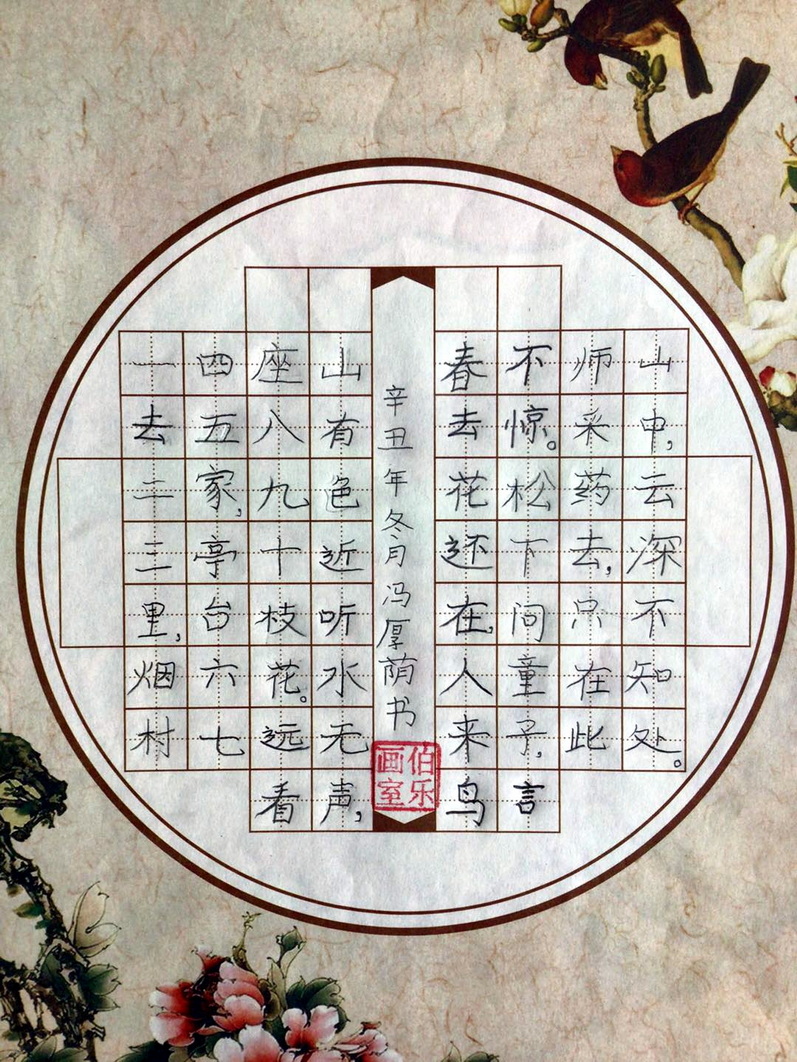 一去二三里,烟村
四五家,亭台六七
座八九十枝花。远看
山有色近听水无声,
春去花还在,人来鸟
不惊。松下问童子,言
师采药去,只在此
山中,云深不知处。
辛丑年冬月冯厚荫书
伯乐画室